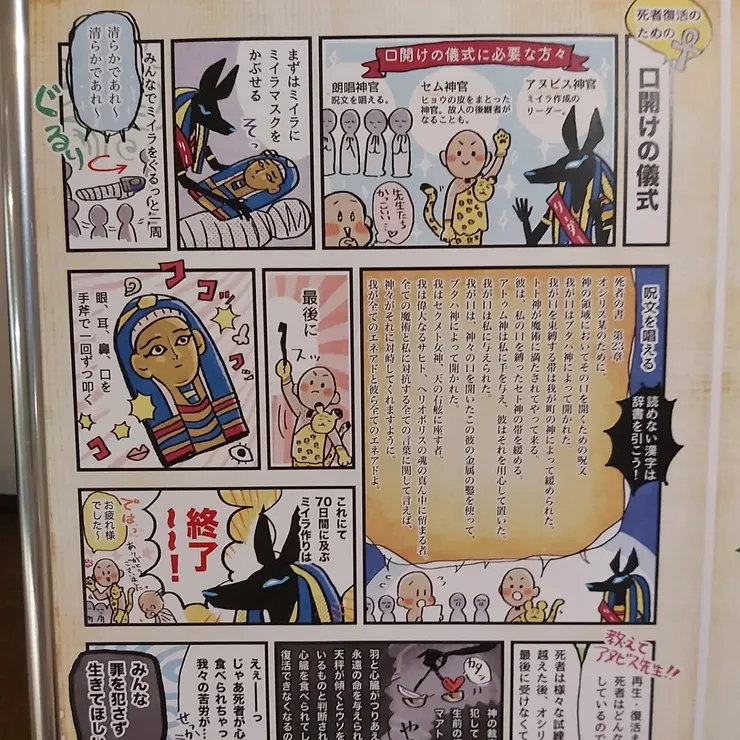 死者復活の
ための
口開けの儀式
口開けの儀式に必要な方々
アヌビス神官
ミイラ作成の
リーダー。
セム神官
ヒョウの皮をまとった
神官。故人の後継者が
なることも。
朗唱神官
呪文を唱える。
先生たち
かっこい…♡
まずはミイラに
ミイラマスクを
かぶせる
そっ
みんなでミイラをぐるっと一周
清らかであれ〜
清らかであれ〜
ぐるり
呪文を唱える
読めない漢字は
辞書を引こう!
オシリス某のために。
神の領域においてその口を開くための呪文
我が口はプタハ神によって開かれた。
我が口を束縛する帯は我が町の神によって緩められた。
トト神が魔術に満たされてやって来る。
彼は、私の口を縛ったセト神の帯を緩める。
アトゥム神は私に手を与え、彼はそれを用心して置いた。
我が口は私に与えられた。
我が口は、神々の口を開いたこの彼の金属の鑿を使って、
プタハ神によって開かれた。
我はセクメト女神、天の右舷に座す者。
我は偉大なるサヒト、ヘリオポリスの魂の真ん中に留まる者。
全ての魔術と私に対抗する全ての言葉に関して言えば、
神々がそれに対峙してくれますように。
我が全てのエネアドと彼ら全てのエネアドよ。
最後に
スッ
ココッ
コッ
眼、耳、鼻、口を
手斧で一回ずつ叩く
これにて
70日間に及ぶ
ミイラ作りは
終了
〜〜!
では〜
ありがとう
お疲れ様
でした〜
教えて
アヌビス先生!!
再生・復活
死者はどん
しているので
死者は様々な試練
越えた後、オシリ
最後に受けなくて
カタン
神の裁
犯して
生前の
マアト
羽と心臓がつりあえ
永遠の命を与えられ
天秤が傾くとウソを
いるものと判断され
心臓を食べられてし
復活できなくなるの
えぇーーっ
じゃあ死者が心
食べられちゃっ
我々の苦労が…
みんな
罪を犯さず
生きてほしい